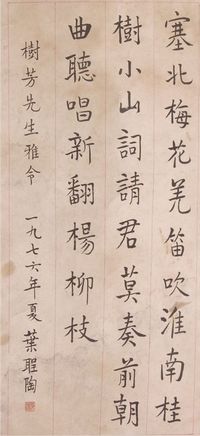 塞北梅花羌笛吹淮南桂
樹小山詞請君莫奏前朝
曲聽唱新翻楊柳枝
樹芳先生雅令 一九七六年夏 葉聖陶